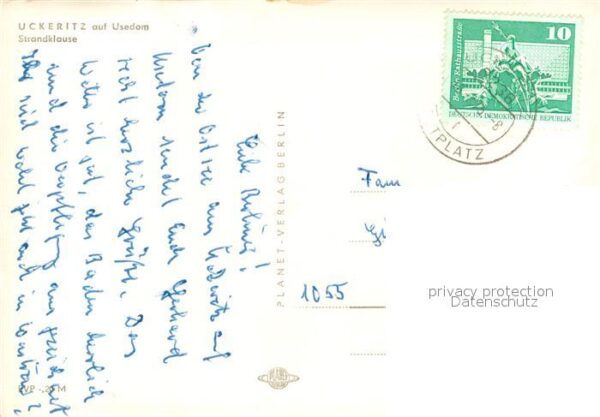 UCKERITZ auf Usedom
Strandklause
Liebe Berliner!
Von der Ostsee aus Ückeritz auf
Usedom sendet Euch Gerhard
recht herzliche Grüße. Das
Wetter ist gut, das Baden herrlich
und die Verpflegung ausgezeichnet
Ihr seid wohl jetzt auch in
EVP -,20 M
PLANET-VERLAG BERLIN
10
Berlin, Rathausstraße
DEUTSCHE DEMOKRATISCHE REPUBLIK
TPLATZ
Fam
1055
privacy protection
Datenschutz